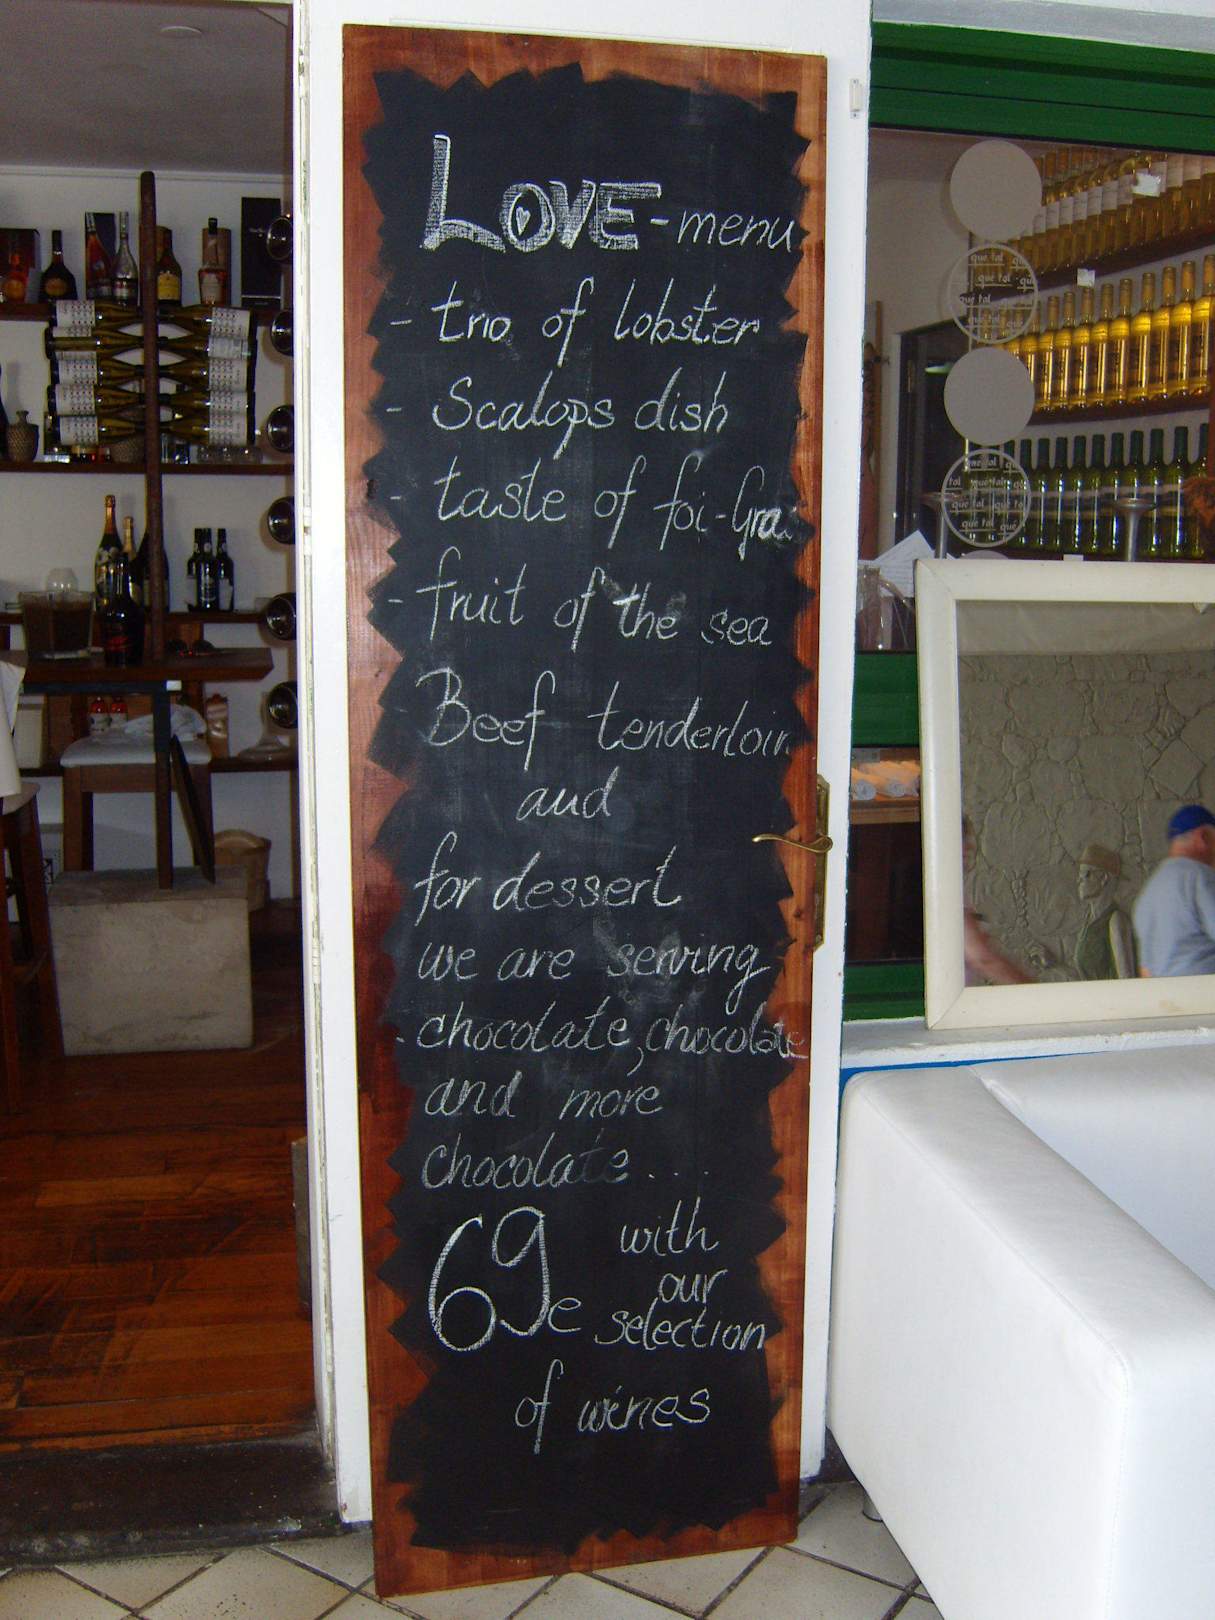 LOVE-menu
- trio of lobster
- Scalops dish
- taste of foi-Gra
- fruit of the sea
Beef tenderloin
and
for dessert
we are serving
- chocolate, chocolate
and more
chocolate....
69e with
our
selection
of wines
que tol
que tol